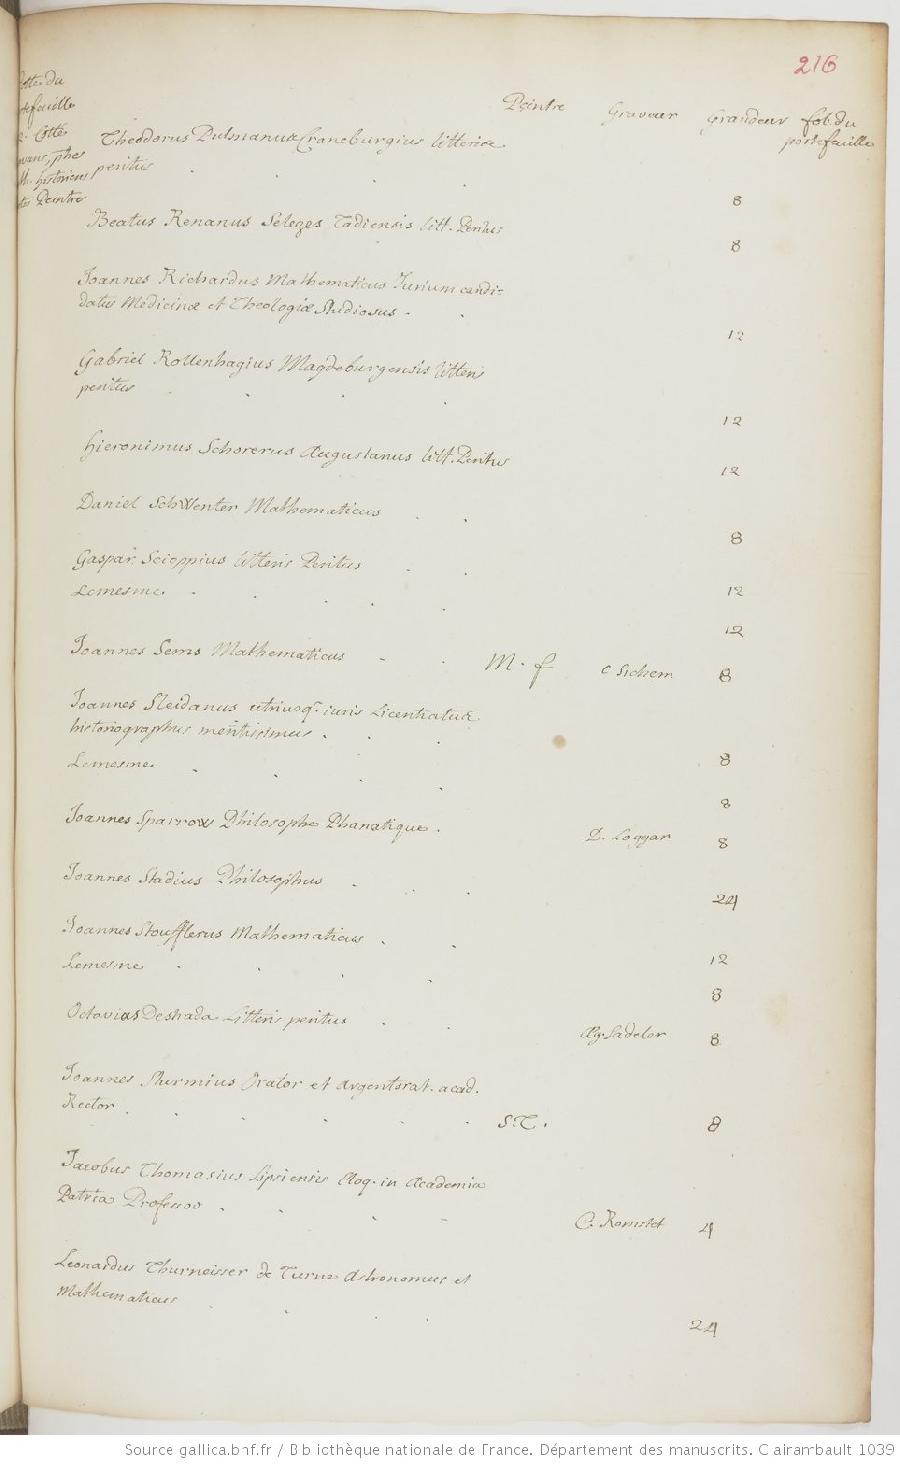 216
Peintre Graveur Grandeur fol. du
portefeuille
Cotte du
Portefeuille
Cotte
historiens
Peintre
Theodorus Dulmanus Craneburgius litteris
peritus
8
Beatus Renanus Selezes Tadiensis litt. Peritus
8
Joannes Richardus Mathematicus Jurium candi-
datus Medicinæ et Theologiæ Studiosus
12
Gabriel Rollenhagius Magdeburgensis litteris
peritus
12
Hieronimus Schorerus Augustanus litt. Peritus
12
Daniel Schwenter Mathematicus
8
Gaspar. Scioppius litteris Peritus
12
Lemesme
12
Joannes Sems Mathematicus M. f C Sichem 8
Joannes Sleidanus utriusq. iuris Licentiatus
historiographus meritissimus
8
Lemesme
8
Joannes Sparrow Philosophe Phanatique D. Loggar 8
Joannes Stadius Philosophus 24
Joannes Stoufflerus Mathematicus 12
Lemesme 8
Octavias De strada Litteris peritus Æg. Sadeler 8
Joannes Sturmius Orator et Argentorat. acad.
Rector S. T. 8
Jacobus Thomasius Lipsiensis Eloq. in Academia
Patria Professor C. Romstet 4
Leonardus Thurneisser de Turnn Astronomus et
Mathematicus 24
Source gallica.bnf.fr / Bibliothèque nationale de France. Département des manuscrits. Clairambault 1039